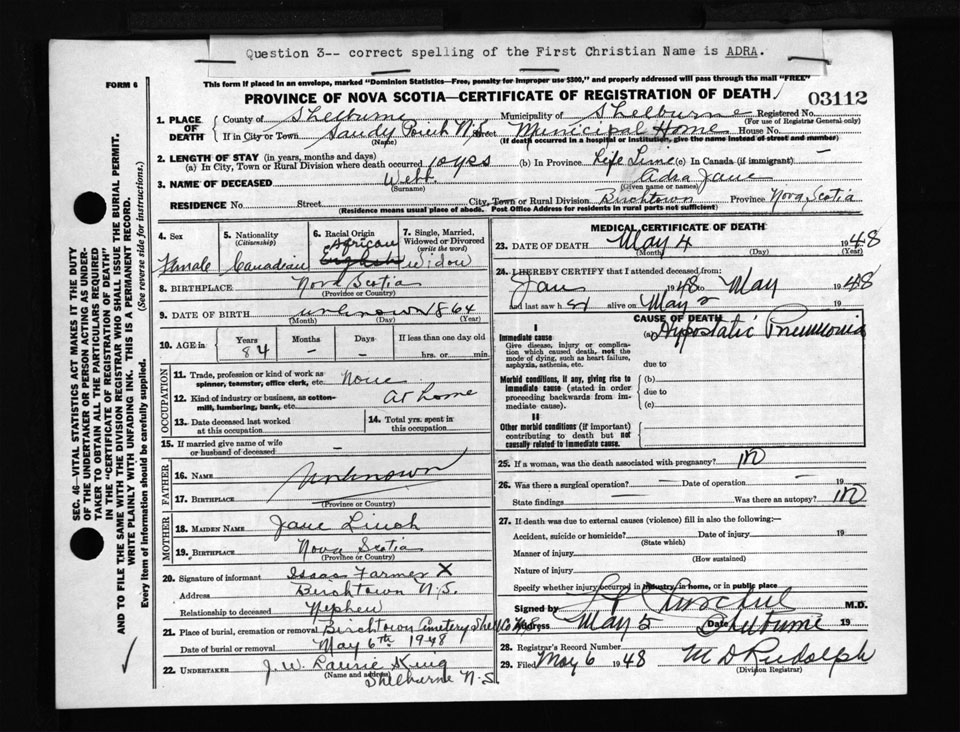 Question 3-- correct spelling of the First Christian Name is ADRA.
FORM 6
This form if placed in an envelope, marked "Dominion Statistics—Free, penalty for improper use $300," and properly addressed will pass through the mail "FREE"
PROVINCE OF NOVA SCOTIA—CERTIFICATE OF REGISTRATION OF DEATH
03112
1. PLACE OF DEATH
County of Shelburne Municipality of Shelburne Registered No.
(For use of Registrar General only)
If in City or Town Sandy Point N.S. Street Municipal Home House No.
(Name) (If death occurred in a hospital or institution, give the name instead of street and number)
2. LENGTH OF STAY (in years, months and days)
(a) In City, Town or Rural Division where death occurred 10 yrs (b) In Province Life Time (c) In Canada (if immigrant) —
3. NAME OF DECEASED Webb Adra Jane
(Surname) (Given name or names)
RESIDENCE No. Street City, Town or Rural Division Birchtown Province Nova Scotia
(Residence means usual place of abode. Post Office Address for residents in rural parts not sufficient)
4. Sex Female
5. Nationality (Citizenship) Canadian
6. Racial Origin African English
7. Single, Married, Widowed or Divorced (write the word) Widow
8. BIRTHPLACE Nova Scotia
(Province or Country)
9. DATE OF BIRTH unknown 1864
(Month) (Day) (Year)
10. AGE in Years Months Days If less than one day old
84 — — hrs. or min.
OCCUPATION
11. Trade, profession or kind of work as spinner, teamster, office clerk, etc. None
12. Kind of industry or business, as cotton-mill, lumbering, bank, etc. At home
13. Date deceased last worked at this occupation
14. Total yrs. spent in this occupation
15. If married give name of wife or husband of deceased —
FATHER
16. NAME Unknown
17. BIRTHPLACE
(Province or Country)
MOTHER
18. MAIDEN NAME Jane Linch
19. BIRTHPLACE Nova Scotia
(Province or Country)
20. Signature of informant Isaac Farmer X
Address Birchtown N.S.
Relationship to deceased Nephew
21. Place of burial, cremation or removal Birchtown Cemetery Shel. Co. N.S.
Date of burial or removal May 6th 1948
22. UNDERTAKER J. W. Laurie King
(Name and address) Shelburne N.S.
MEDICAL CERTIFICATE OF DEATH
23. DATE OF DEATH May 4 1948
(Month) (Day) (Year)
24. I HEREBY CERTIFY that I attended deceased from:
Jan 1948 to May 1948
and last saw h er alive on May 2 19
CAUSE OF DEATH
I
Immediate cause (a) Hypostatic Pneumonia
Give disease, injury or complication which caused death, not the mode of dying, such as heart failure, asphyxia, asthenia, etc.
due to
Morbid conditions, if any, giving rise to immediate cause (stated in order proceeding backwards from immediate cause).
(b)
due to
(c)
II
Other morbid conditions (if important) contributing to death but not causally related to immediate cause.
25. If a woman, was the death associated with pregnancy? no
26. Was there a surgical operation? — Date of operation — 19
State findings — Was there an autopsy? no
27. If death was due to external causes (violence) fill in also the following:—
Accident, suicide or homicide? Date of injury 19
(State which)
Manner of injury
(How sustained)
Nature of injury
Specify whether injury occurred in industry, in home, or in public place
Signed by M.D.
Address May 5 Date Shelburne 19
28. Registrar's Record Number
29. Filed May 6 1948 M D Rudolph
(Division Registrar)
SEC. 46—VITAL STATISTICS ACT MAKES IT THE DUTY
OF THE UNDERTAKER OR PERSON ACTING AS UNDER-
TAKER TO OBTAIN ALL THE PARTICULARS REQUIRED
IN THE "CERTIFICATE OF REGISTRATION OF DEATH"
AND TO FILE THE SAME WITH THE DIVISION REGISTRAR WHO SHALL ISSUE THE BURIAL PERMIT.
WRITE PLAINLY WITH UNFADING INK. THIS IS A PERMANENT RECORD.
Every item of information should be carefully supplied. (See reverse side for instructions.)